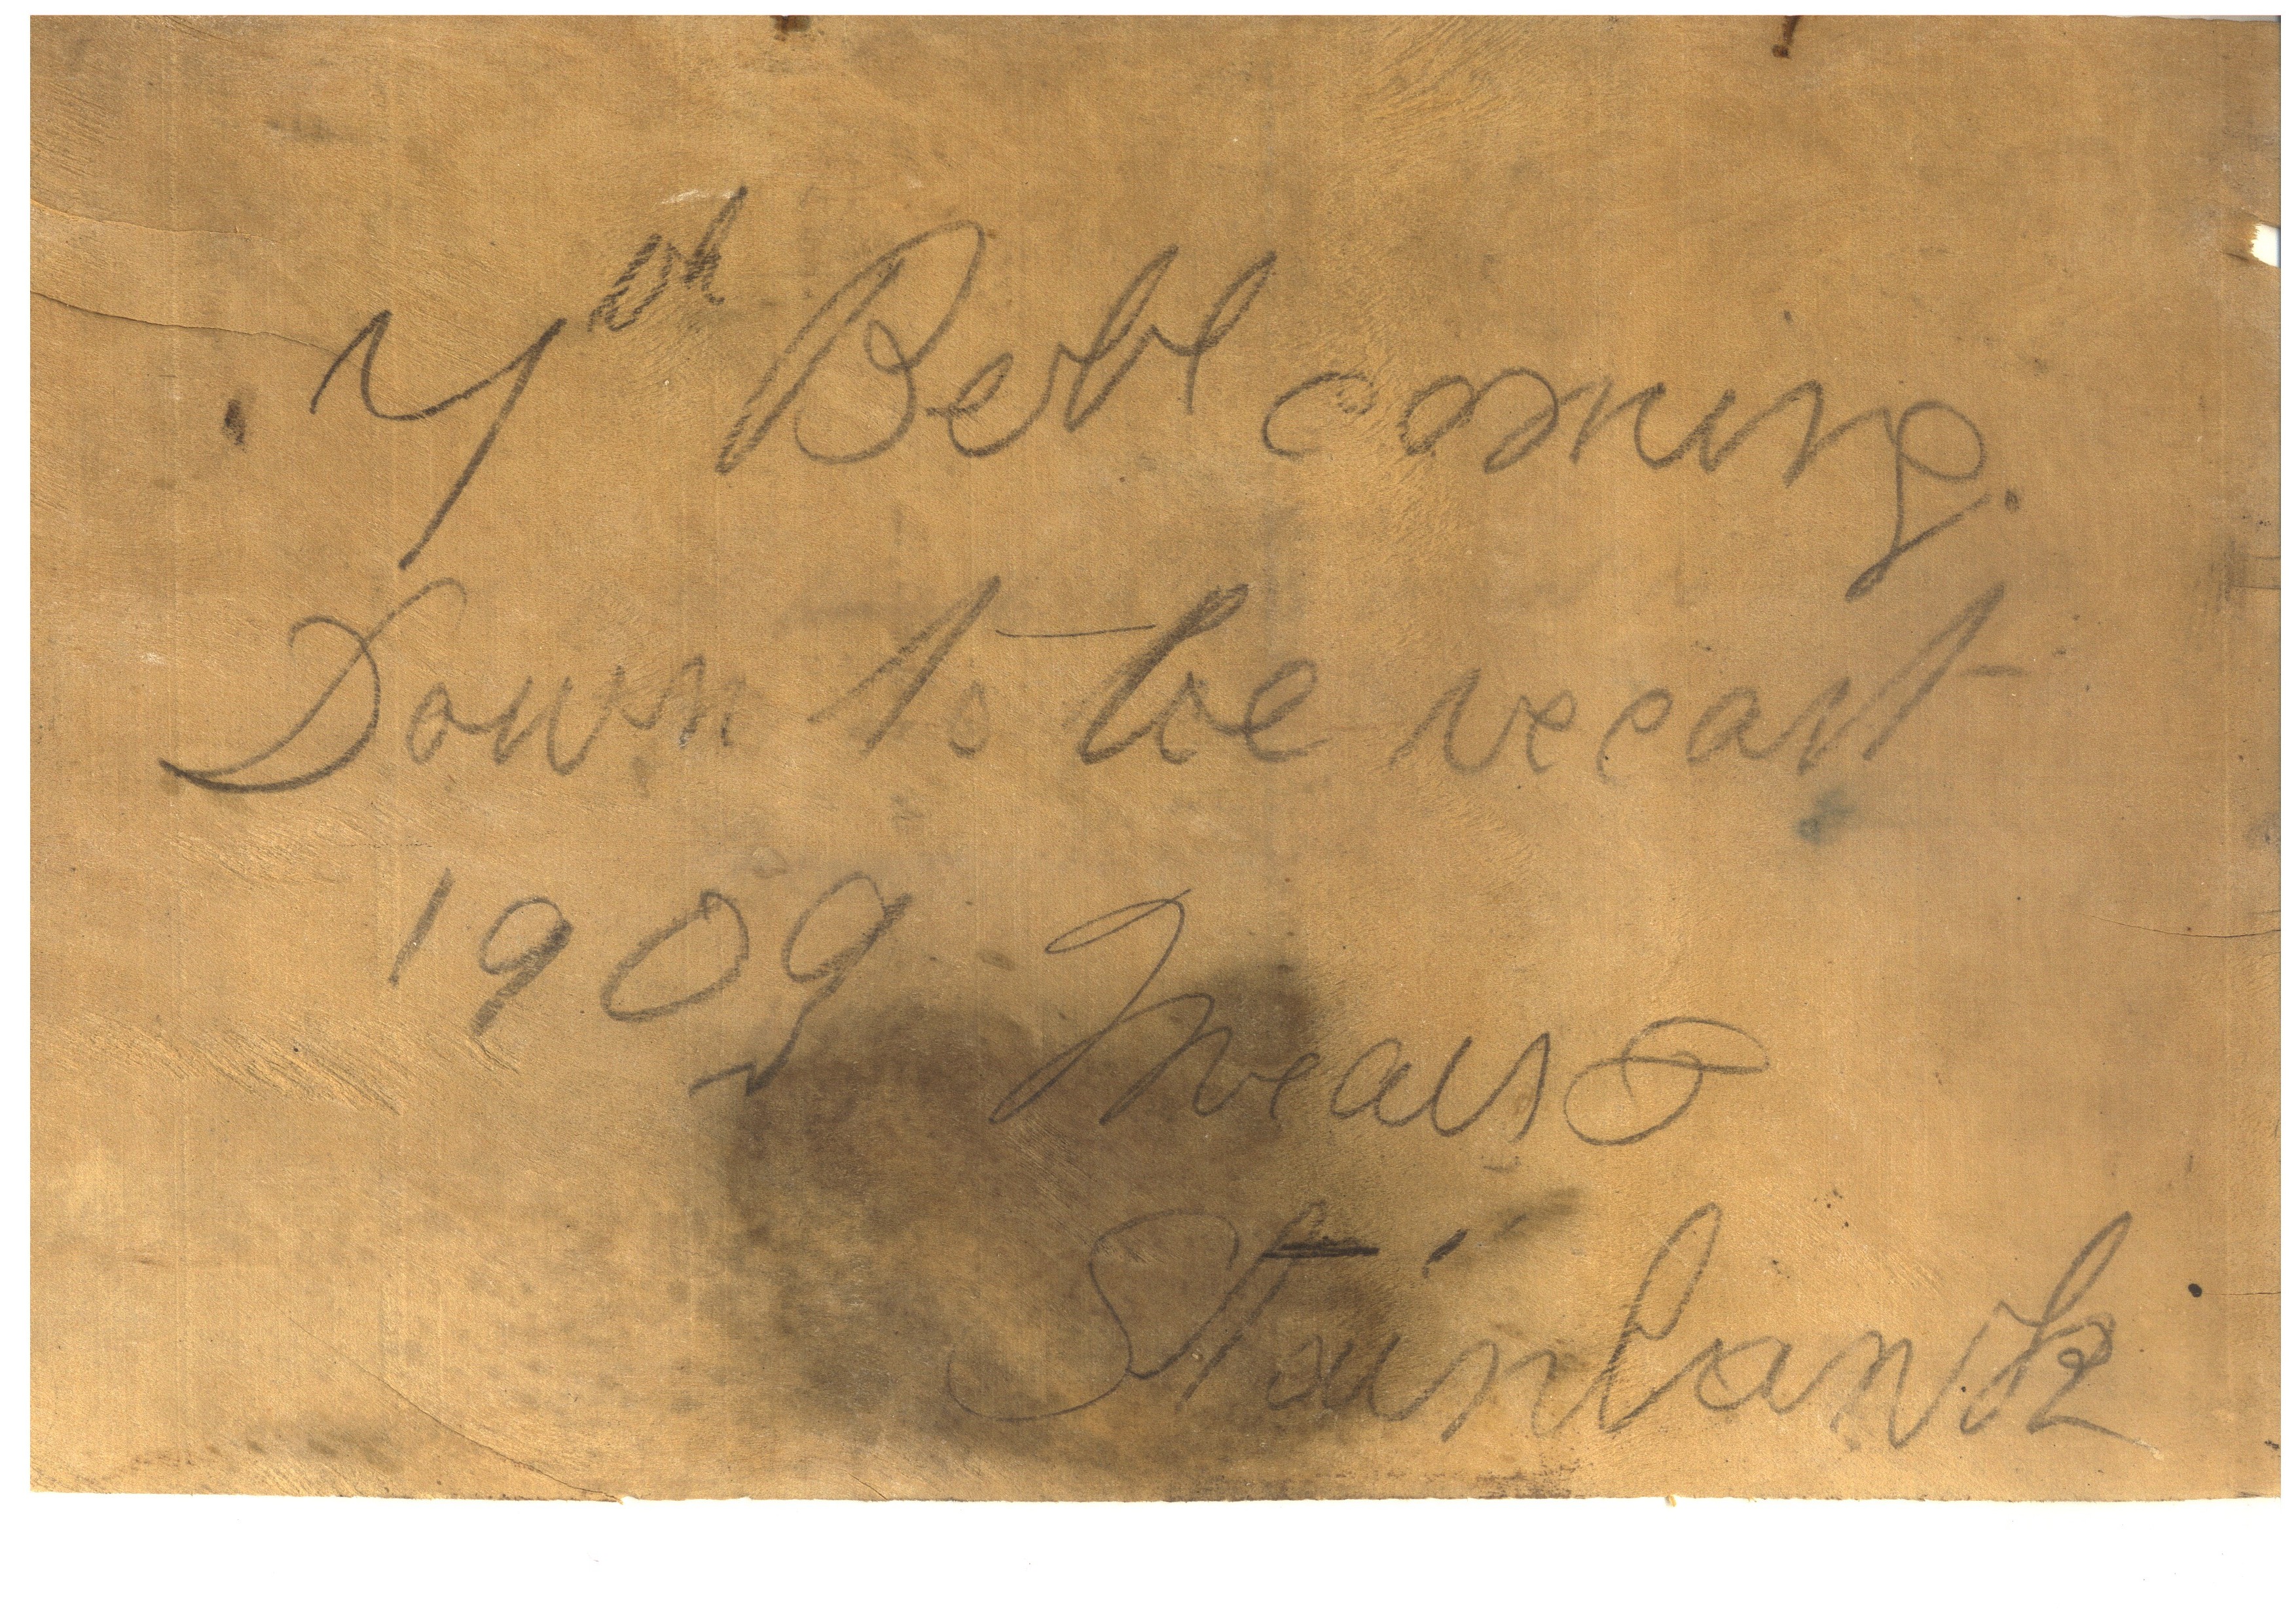 7th Bell coming.
Down to be recast
1909 Mears &
Stainbank